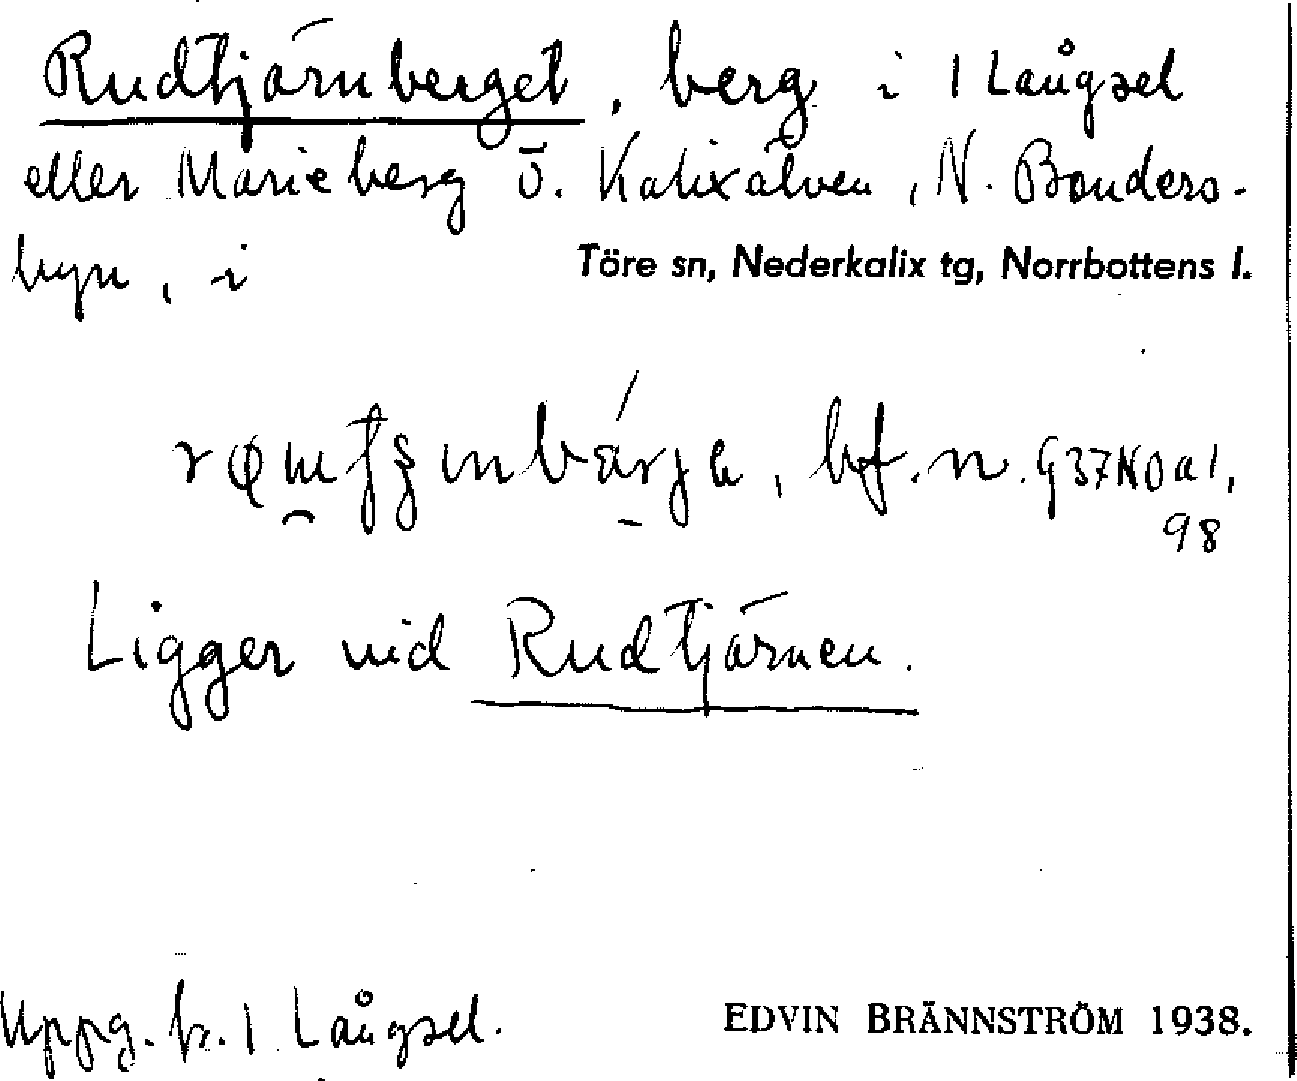 Rudtjärnberget, berg i 1 Laŭgsel
eller Marieberg ö. Kalixälven, N. Bonders-
byn, i Töre sn, Nederkalix tg, Norrbottens l.
bf. n. G37NOa1,
98
Ligger vid Rudtjärnen.
Uppg. fr. 1 Långsel. EDVIN BRÄNNSTRÖM 1938.